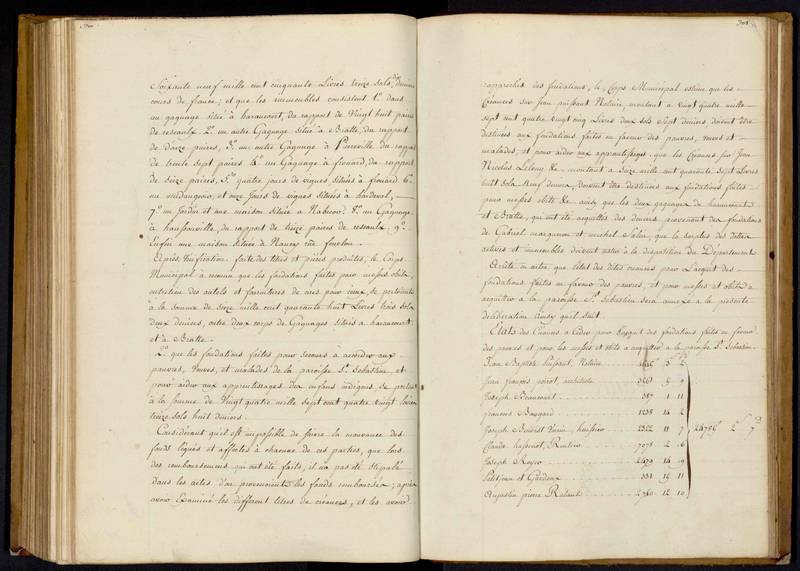 Soixante neuf mille cent cinquante Livres treize sols deniers
cours de france; et que les immeubles consistent 1.° dans
un gagnage situé à haraucourt, du rapport de Vingt huit paires
de resceaux 2.° un autre Gagnage situé à Bratte, du rapport
de douze paires, 3.° un autre Gagnage à Pierreville du rapport
de trente sept paires 4.° un Gagnage à frouard, du rapport
de seize paires, 5.° quatre jours de vignes situées à frouard 6.°
un vendangeoir, et onze Jours de vignes situées à
7.° un Jardin et une maison située à Nabecor. 8.° un Gagnage
à haussonville, du rapport de treize paires de resceaux, 9.°
Enfin une maison située à Nancy rue
Et après Vérification faite des titres et pièces produites, le Corps
Municipal à reconnu que les fondations faites pour messes obits
entretien des autels et fournitures de cires pour iceux, se portoient
à la somme de seize mille cent quarante huit Livres trois sols
deux deniers, outre deux corps de Gagnages situés à haraucourt
et à Bratte.
2.° que les fondations faites pour secours à accorder aux
pauvres, veuves, et malades de la paroisse S.t Sebastien et
pour aider aux apprentissages des enfans indigens, se portoient
à la somme de Vingt quatre mille sept cent quatre vingt Livres
treize sols huit deniers.
Considérant qu'il est impossible de suivre la mouvance des
fonds légués et affectés à chacune de ces parties, que lors
des remboursemens qui ont été faits, il n'a pas été stipulé
dans les actes d'où provenoient les fonds remboursés; après
avoir Examiné les différent titres de créances, et les avoir
rapprochés des fondations, le Corps Municipal estime que les
Créances sur Jean puissant Notaire, montant à vingt quatre mille
sept cent quatre vingt cinq Livres deux sols sept deniers, doivent être
destinées aux fondations faites en faveur des pauvres, veuves et
malades, et pour aider aux apprentissages. que les Créances sur Jean
Nicolas &.a montant à Seize mille cent quarante sept Livres
huit sols neuf deniers, doivent être destinées aux fondations faites
pour messes obits &.a ainsy que les deux gagnages de haraucourt
et Bratte, qui ont été acquittés des deniers provenant des fondations
de Gabriel et michel que le surplus des dettes
actives et immeubles doivent rester à la disposition du Département
Arrête en outre, que l'état des titres reconnus pour l'acquit des
fondations faites en faveur des pauvres, et pour messes et obits à
acquitter à la paroisse S.t Sebastien sera annexé à la présente
deliberation ainsy qu'il suit.
Etats des Créances à Céder pour l'acquit des fondations faites en faveur
des pauvres et pour les messes et obits à acquitter à la paroisse S.t Sebastien
Jean Baptiste puissant, Notaire
Jean françois poirot, architecte 3261 5 9
Joseph 387 1 11
françois 1238 14 2
Joseph huissier 2322 11 7
Claude Rentier 7078 2 6
Joseph 2479 14 9
et 331 14 11
Augustin pierre 2760 12 10